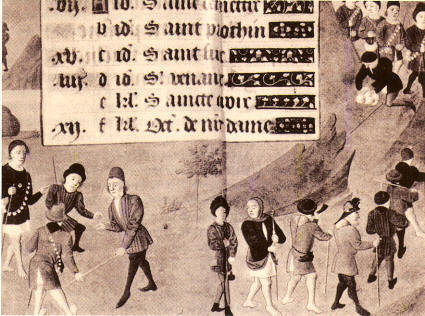 .viij. id. Saint
v id. Saint prothin
.xv. c id. Saint luc
.iiij. d id. St venant
e kl. Saincte croix
.xij. f kl. Oct. de nre dame